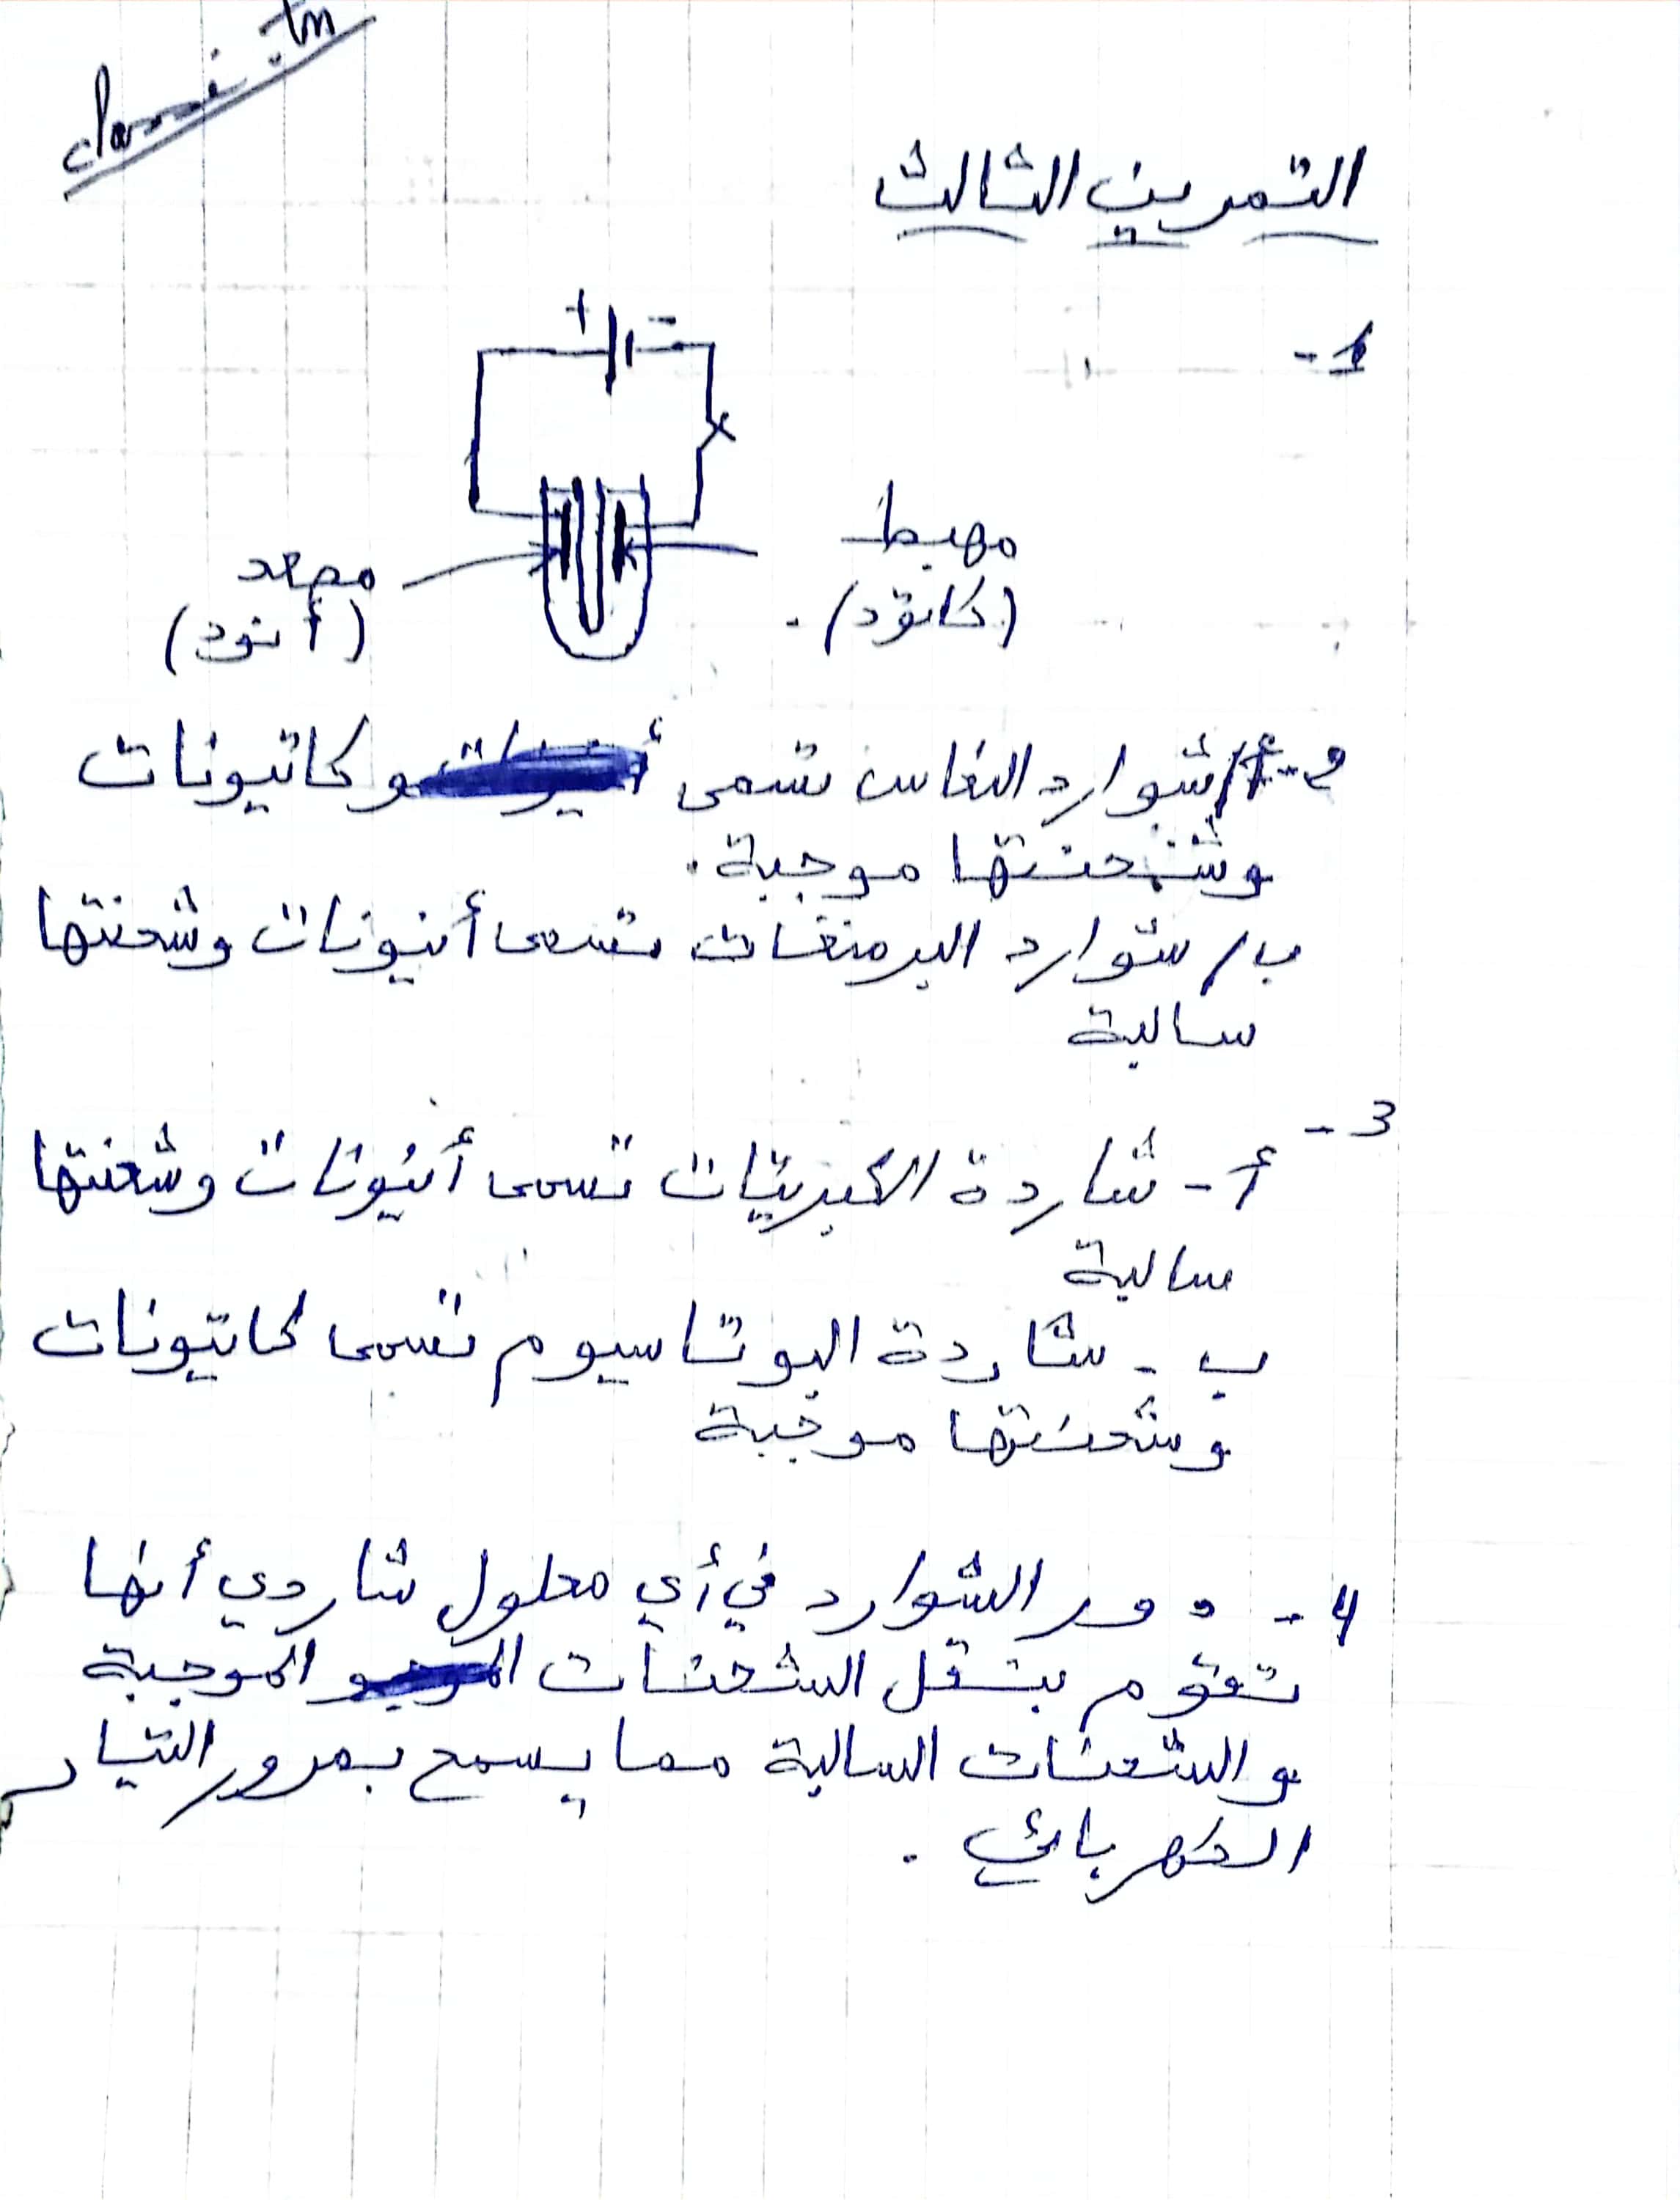 classi.tn
التمرين الثالث
1-
+ -
مهبط
(كاتود).
مصعد
(أنود)
2- أ/ شوارد النحاس تسمى كاتيونات
وشحنتها موجبة.
ب/ شوارد البرمنغنات تسمى أنيونات وشحنتها
سالبة
3-
أ- شاردة الكبريتات تسمى أنيونات وشحنتها
سالبة
ب- شاردة البوتاسيوم تسمى كاتيونات
وشحنتها موجبة
4- دور الشوارد في أي محلول شاردي أنها
تقوم بنقل الشحنات الموجبة
والشحنات السالبة مما يسمح بمرور التيار
الكهربائي.